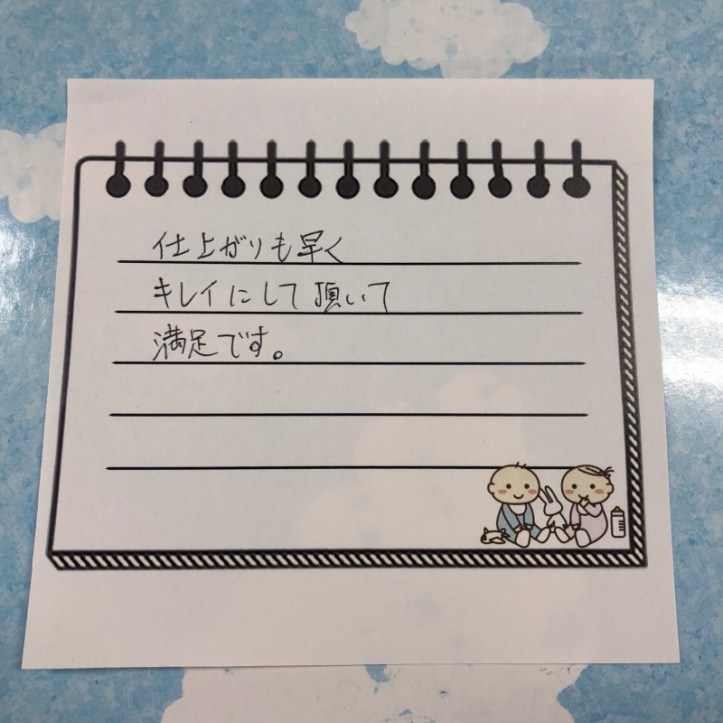 仕上がりも早く
キレイにして頂いて
満足です。